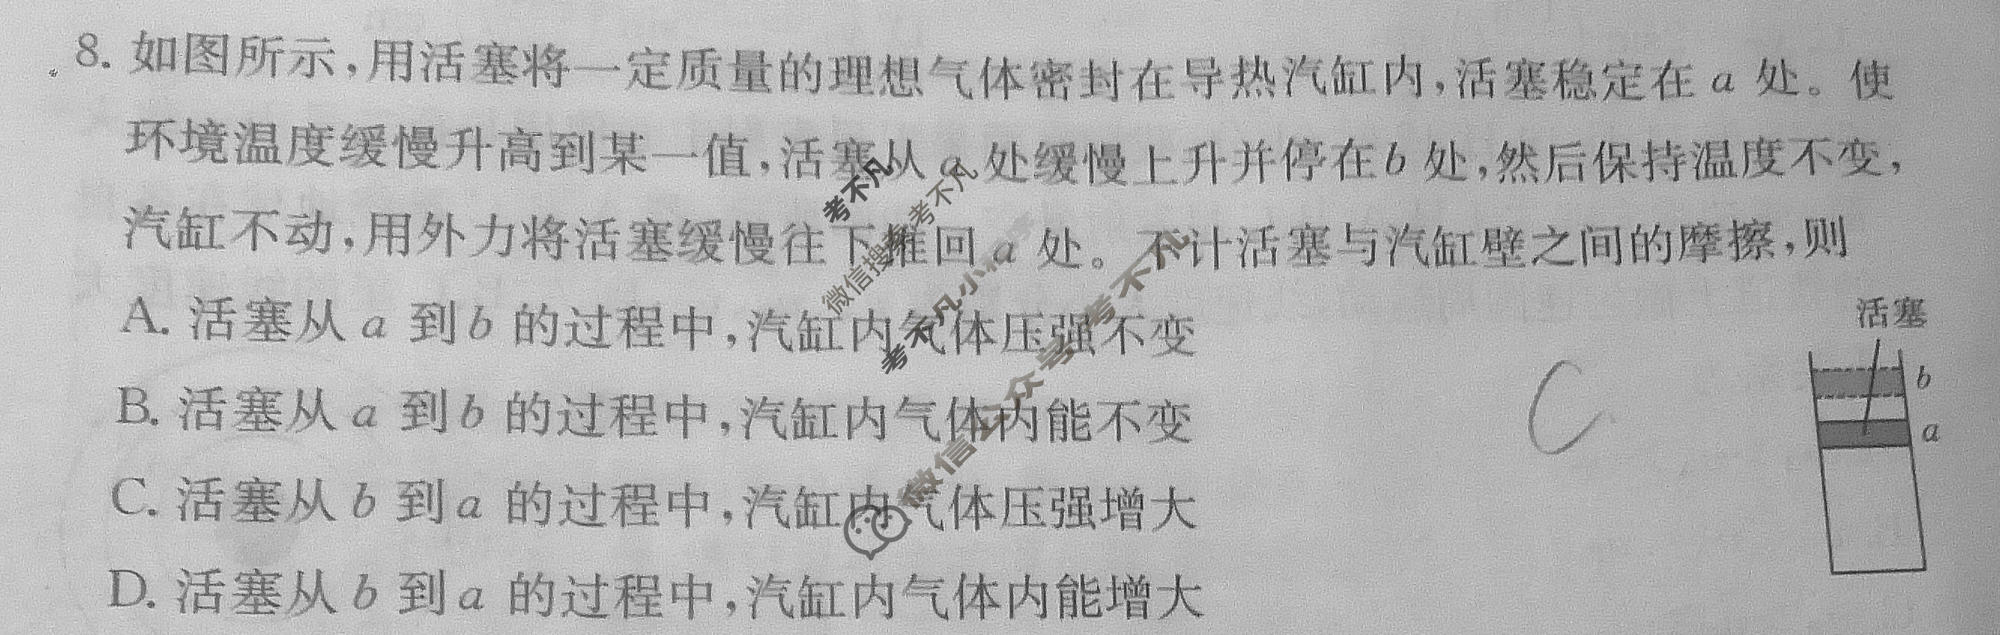 8. 如图所示，用活塞将一定质量的理想气体密封在导热汽缸内，活塞稳定在 a 处。使
环境温度缓慢升高到某一值，活塞从 a 处缓慢上升并停在 b 处，然后保持温度不变，
汽缸不动，用外力将活塞缓慢往下推回 a 处。不计活塞与汽缸壁之间的摩擦，则
A. 活塞从 a 到 b 的过程中，汽缸内气体压强不变
B. 活塞从 a 到 b 的过程中，汽缸内气体内能不变
C. 活塞从 b 到 a 的过程中，汽缸内气体压强增大
D. 活塞从 b 到 a 的过程中，汽缸内气体内能增大
C
活塞
b
a
考不凡
微信搜索考不凡
考不凡小
微信公众号 考不凡